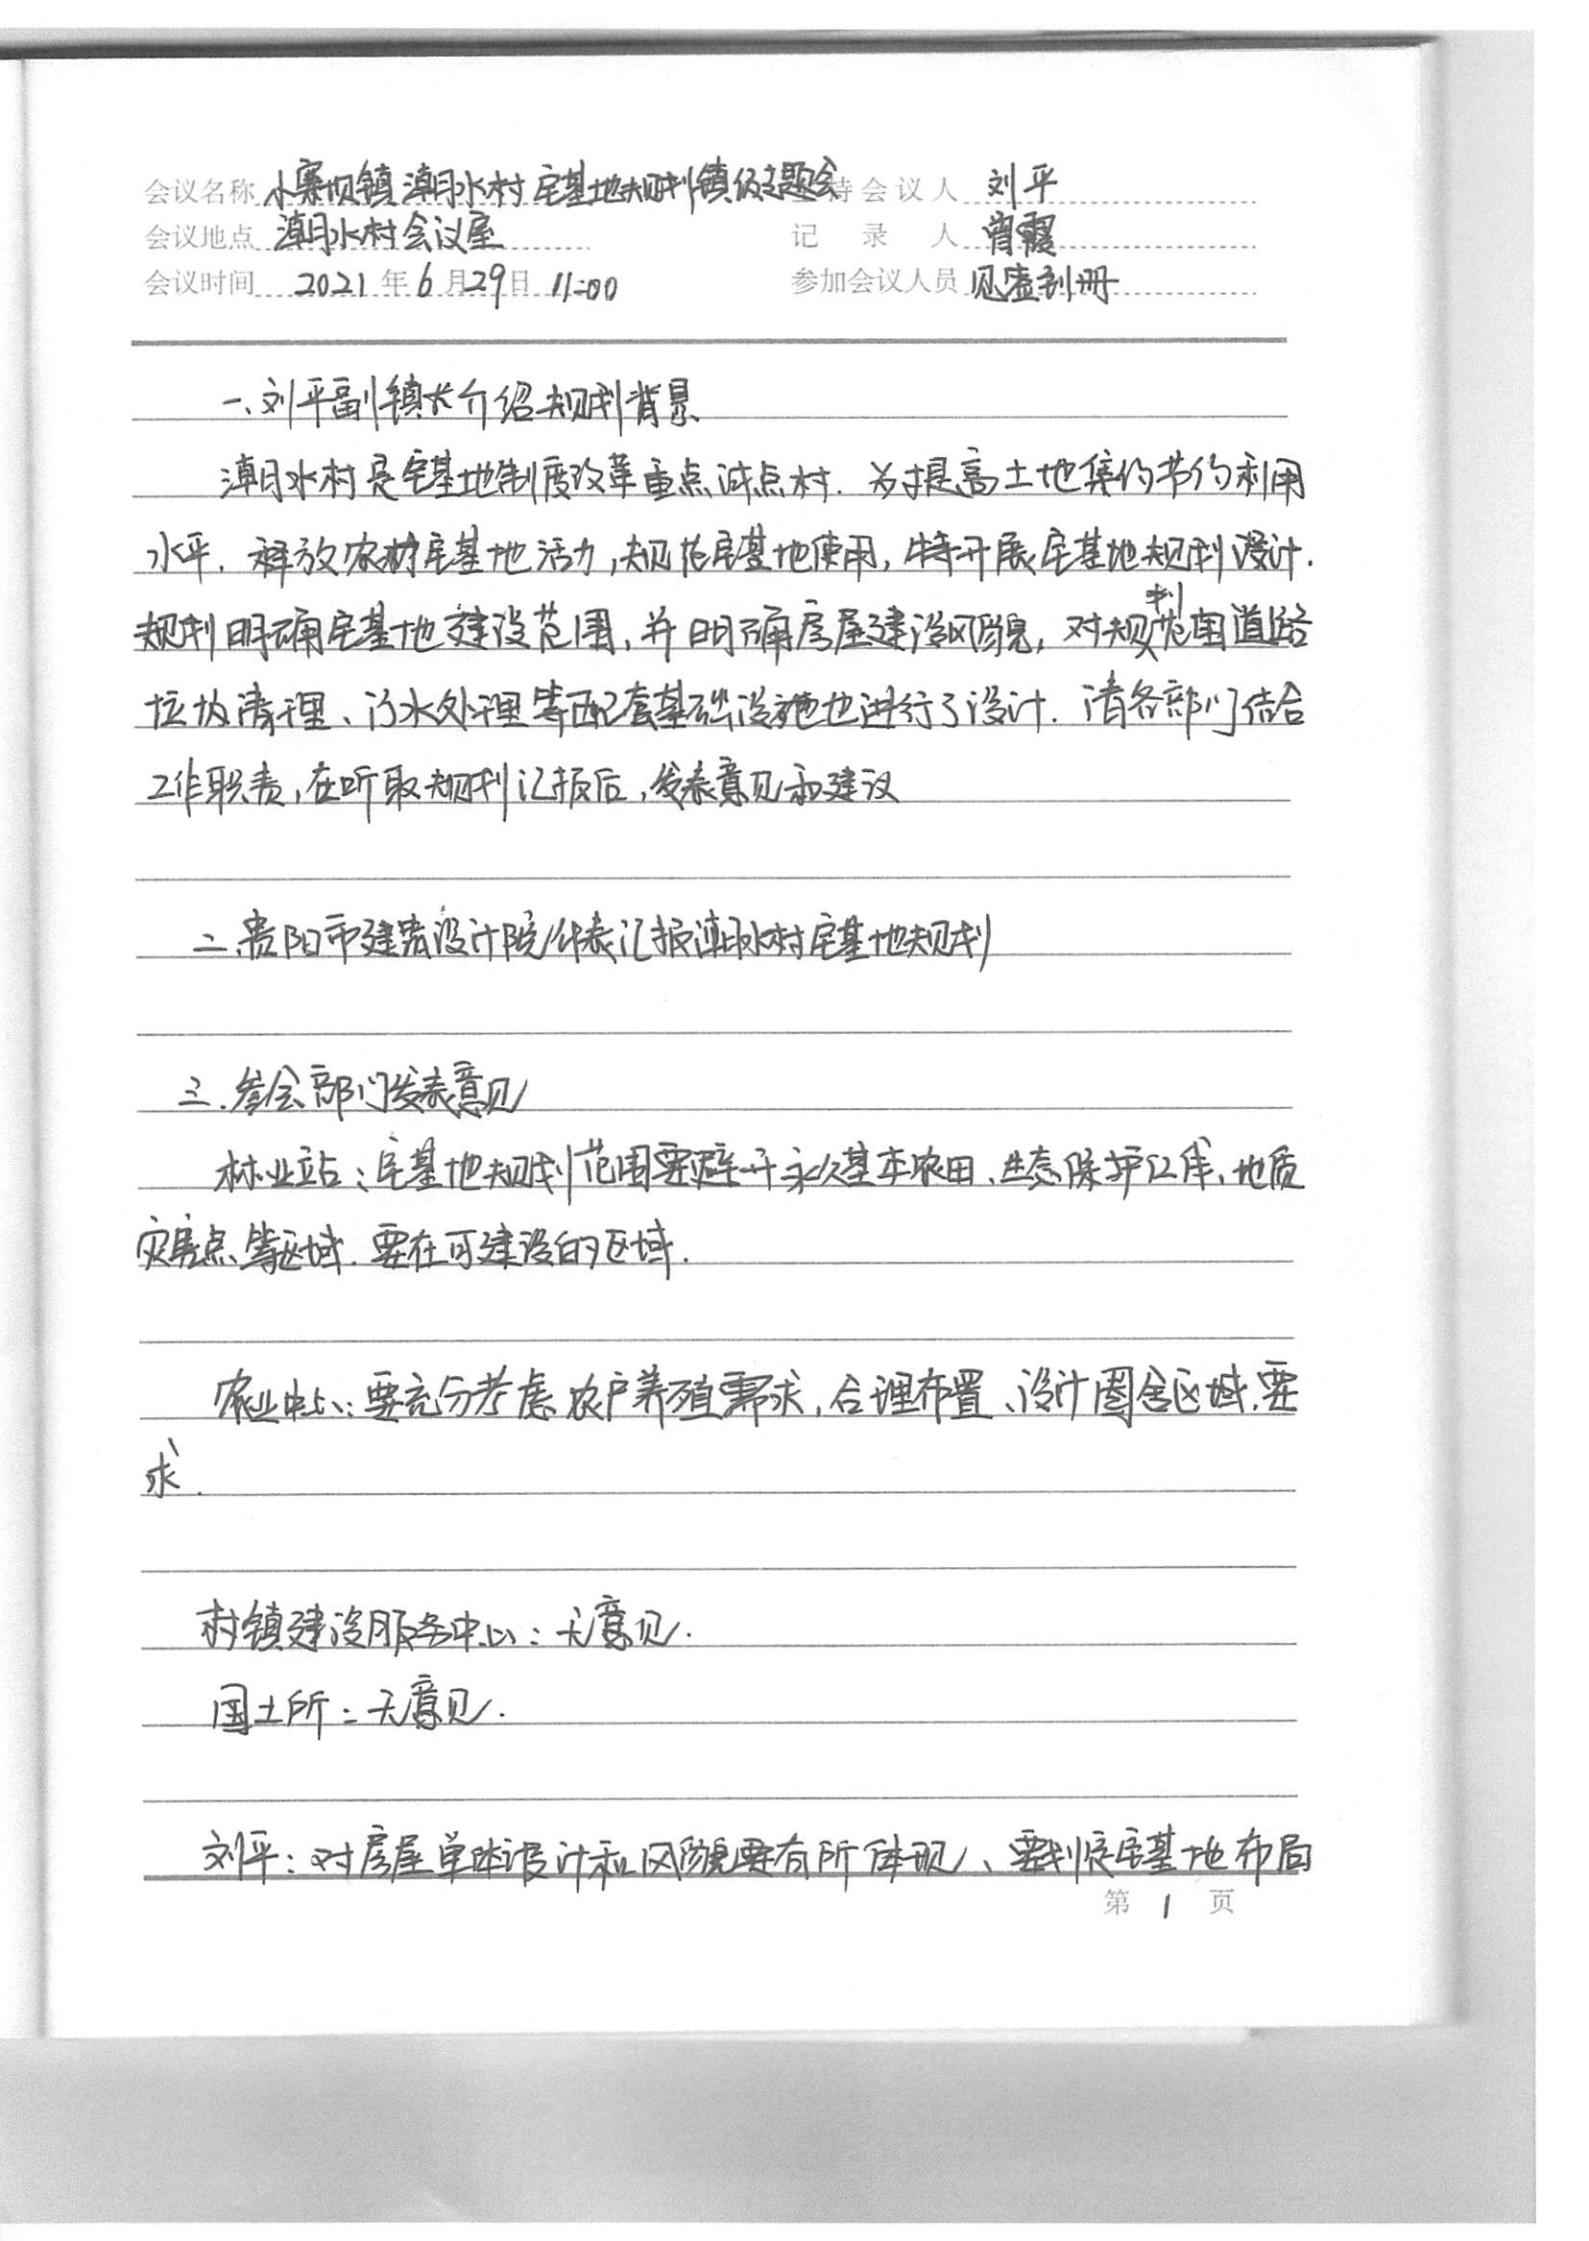 会议名称 小寨坝镇潮水村宅基地规划镇级专题会 持会议人 刘平
会议地点 潮水村会议室 记录人 肖霞
会议时间 2021年6月29日 11:00 参加会议人员 见签到册
一、刘平副镇长介绍规划背景
潮水村是宅基地制度改革重点试点村.为提高土地集约节约利用
水平,释放农村宅基地活力,规范宅基地使用,特开展宅基地规划设计.
规划明确宅基地建设范围,并明确房屋建设风貌,对规划范围道路
垃圾清理、污水处理等配套基础设施也进行了设计.请各部门结合
工作职责,在听取规划汇报后,发表意见和建议
二.贵阳市建筑设计院代表汇报潮水村宅基地规划
三.参会部门发表意见
林业站:宅基地规划范围要避开永久基本农田、生态保护红线,地质
灾害点等区域.要在可建设的区域.
农业中心:要充分考虑农户养殖需求,合理布置、设计圈舍区域.要
求.
村镇建设服务中心:无意见.
国土所:无意见.
刘平:对房屋单体设计和风貌要有所体现、要划定宅基地布局
第 1 页